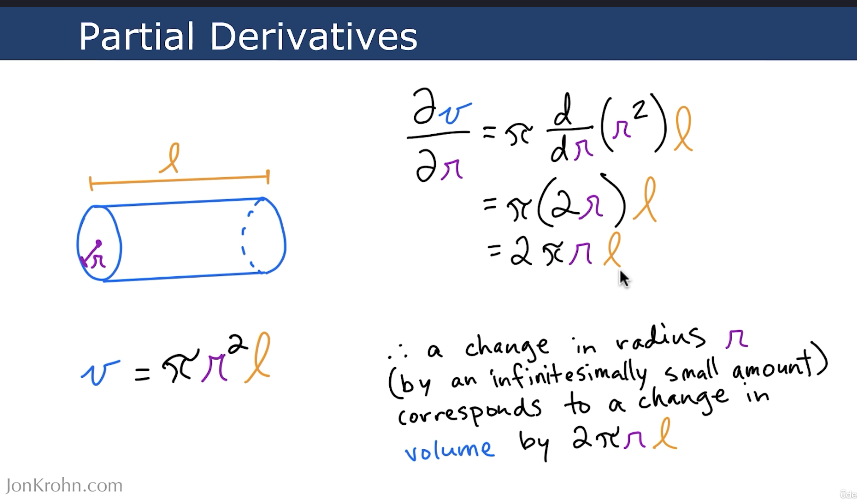 Partial Derivatives
l
r
v = πr²l
∂v/∂r = π d/dr (r²) l
= π(2r) l
= 2πr l
∴ a change in radius r
(by an infinitesimally small amount)
corresponds to a change in
volume by 2πr l
JonKrohn.com